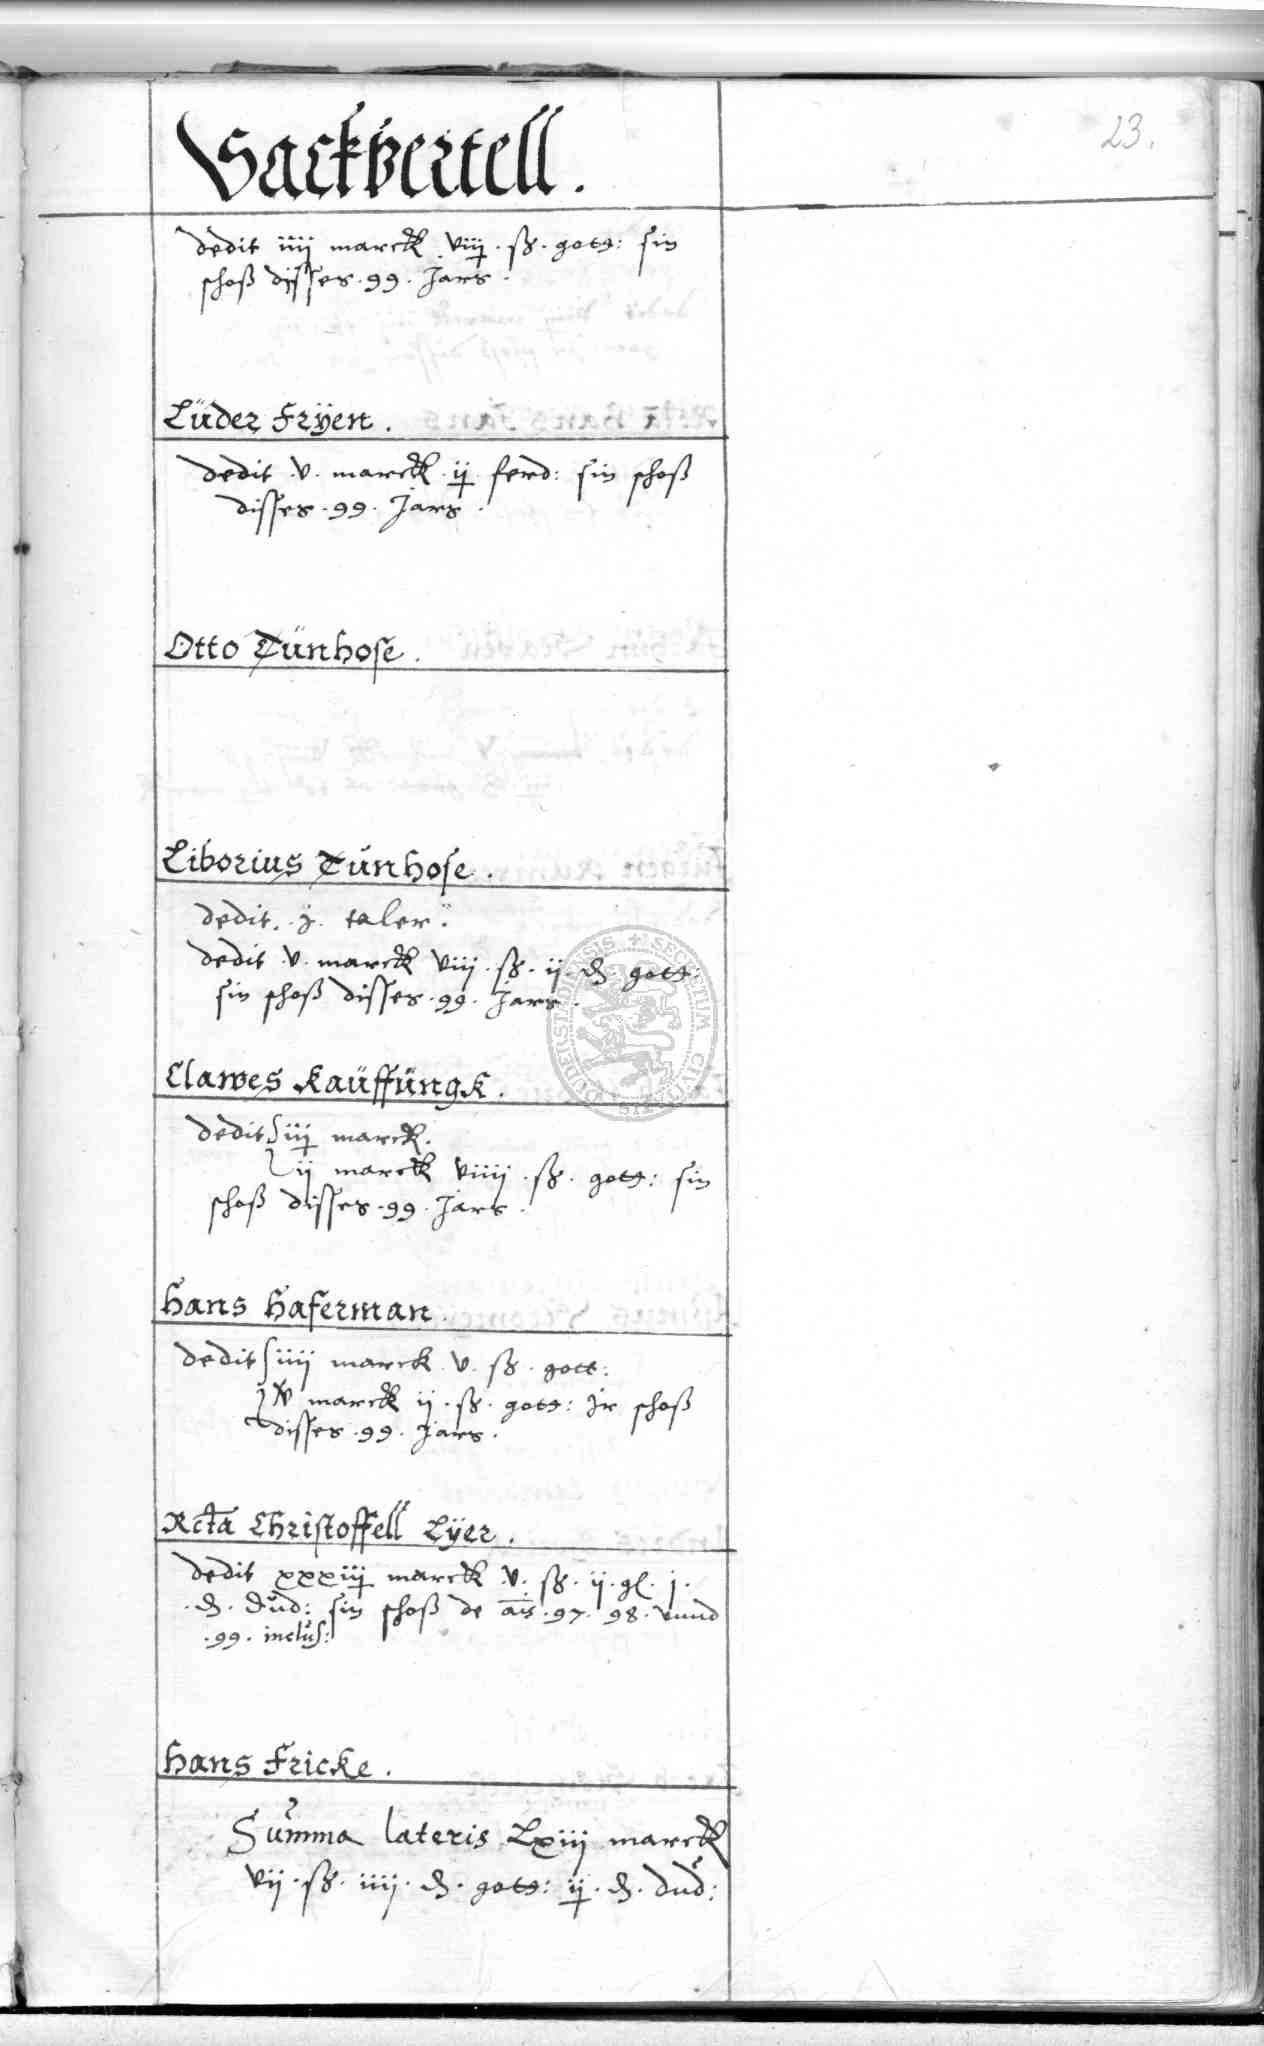 23.
Sackvertell.
dedit iiij marck viij. ß. gott: sin
schoß disses. 99. Jars.
Lüder Frÿen.
dedit. v. marck. ij. ferd: sin schoß
disses. 99. Jars.
Otto Tünhose.
Liborius Tünhose.
dedit. j. taler.
dedit. v. marck viij. ß. ij. ₰ gott:
sin schoß disses. 99. Jars.
Clawes Kaüffüngk.
dedit iij marck.
ij marck viiij. ß. gott: sin
schoß disses. 99. Jars.
Hans Haferman.
dedit iiij marck. v. ß. gott:
v marck ij. ß. gott: Jr schoß
disses. 99. Jars.
Rcta Christoffell Lÿer.
dedit xxxiij marck. v. ß. ij. gl. j.
₰. Dud: sin schoß de ais. 97. 98. vnnd
. 99. inclus:
Hans Fricke.
Summa lateris Lxiij marck
vij. ß. iiij. ₰. gott: ij. ₰. dud:
SECRETUM CIVITATIS DUDERSTADIENSIS